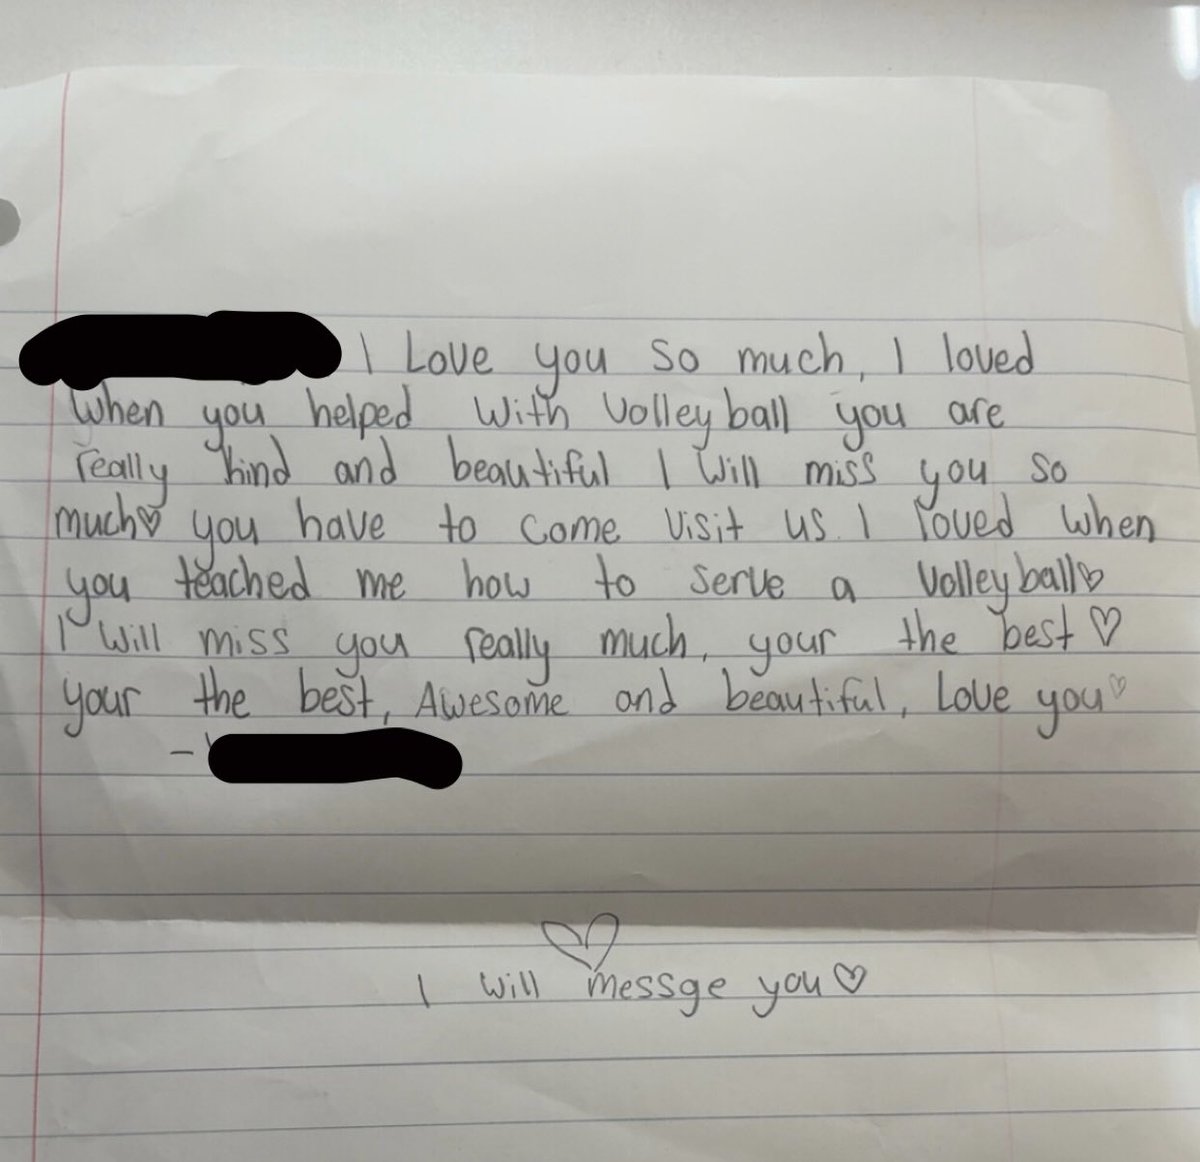 I Love you so much, I loved
when you helped with volleyball you are
really kind and beautiful I will miss you so
much♡ you have to come visit us. I loved when
you teached me how to serve a volleyball♡
I will miss you really much, your the best ♡
your the best, Awesome and beautiful, Love you♡
-
I will messge you♡